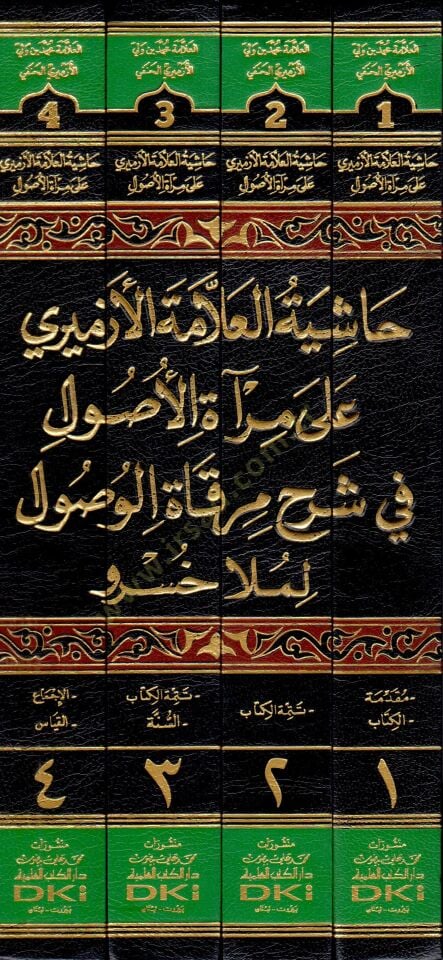 العلامة محمد بن ولي
الأزميري الحنفي
1
حاشية العلامة الأزميري
على مرآة الأصول
العلامة محمد بن ولي
الأزميري الحنفي
2
حاشية العلامة الأزميري
على مرآة الأصول
العلامة محمد بن ولي
الأزميري الحنفي
3
حاشية العلامة الأزميري
على مرآة الأصول
العلامة محمد بن ولي
الأزميري الحنفي
4
حاشية العلامة الأزميري
على مرآة الأصول
حَاشِيَةُ العَلاَّمَةَ الأَزمِيري
عَلى مِرآةِ الأُصُولِ
في شَرح مِرقَاةِ الوُصُول
لمُلا خُسْرو
- مقدمة
- الكتاب
١
منشورات
محمد علي بيضون
دار الكتب العلمية
DKi
بيروت - لبنان
- تتمة الكتاب
٢
منشورات
محمد علي بيضون
دار الكتب العلمية
DKi
بيروت - لبنان
- تتمة الكتاب
- السُّنَّة
٣
منشورات
محمد علي بيضون
دار الكتب العلمية
DKi
بيروت - لبنان
- الإجماع
- القياس
٤
منشورات
محمد علي بيضون
دار الكتب العلمية
DKi
بيروت - لبنان